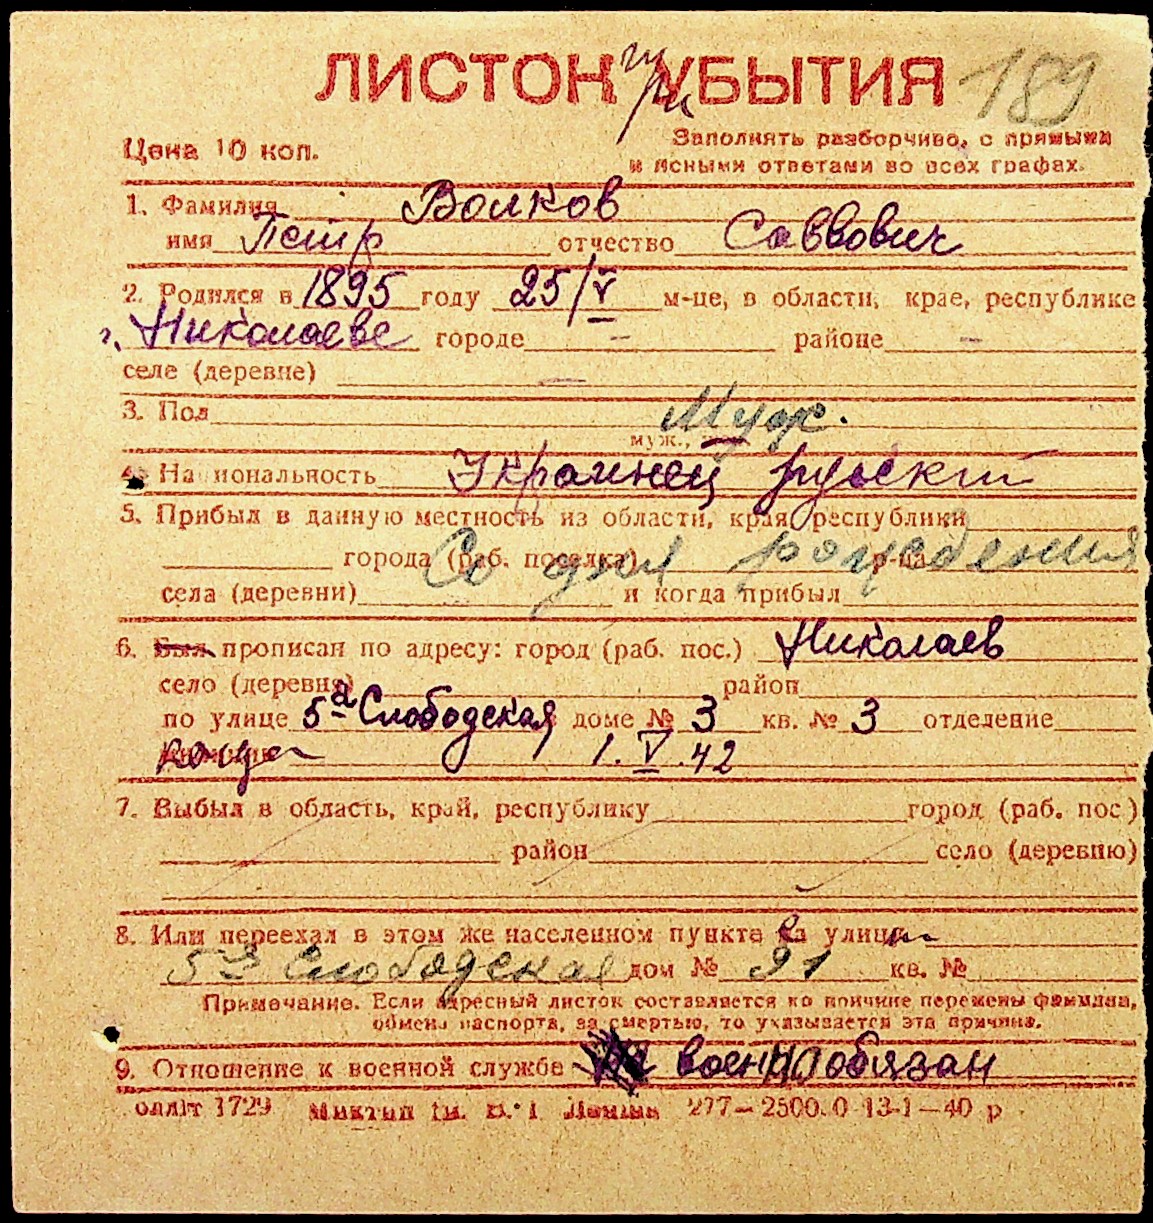 ЛИСТОК при УБЫТИЯ 189
Цена 10 коп.
Заполнять разборчиво, с прямыми
и ясными ответами во всех графах.
1. Фамилия Волков
имя Петр отчество Саввович
2. Родился в 1895 году 25/V м-це, в области, крае, республике
г. Николаеве городе – районе –
селе (деревне) –
3. Пол Муж.
муж.,
4. Национальность Украинец русский
5. Прибыл в данную местность из области, края республики
города (раб. поселка) р-на
Со дня рождения
села (деревни) и когда прибыл
6. Был прописан по адресу: город (раб. пос.) Николаев
село (деревня) район
по улице 5а Слободская доме № 3 кв. № 3 отделение
1.V.42
7. Выбыл в область, край, республику город (раб. пос.)
район село (деревню)
8. Или переехал в этом же населенном пункте на улицу
5я Слободская дом № 91 кв. №
Примечание. Если адресный листок составляется по причине перемены фамилии,
обмена паспорта, за смертью, то указывается эта причина.
9. Отношение к военной службе военнообязан
оллит 1729 277–2500.0 13-1–40 р